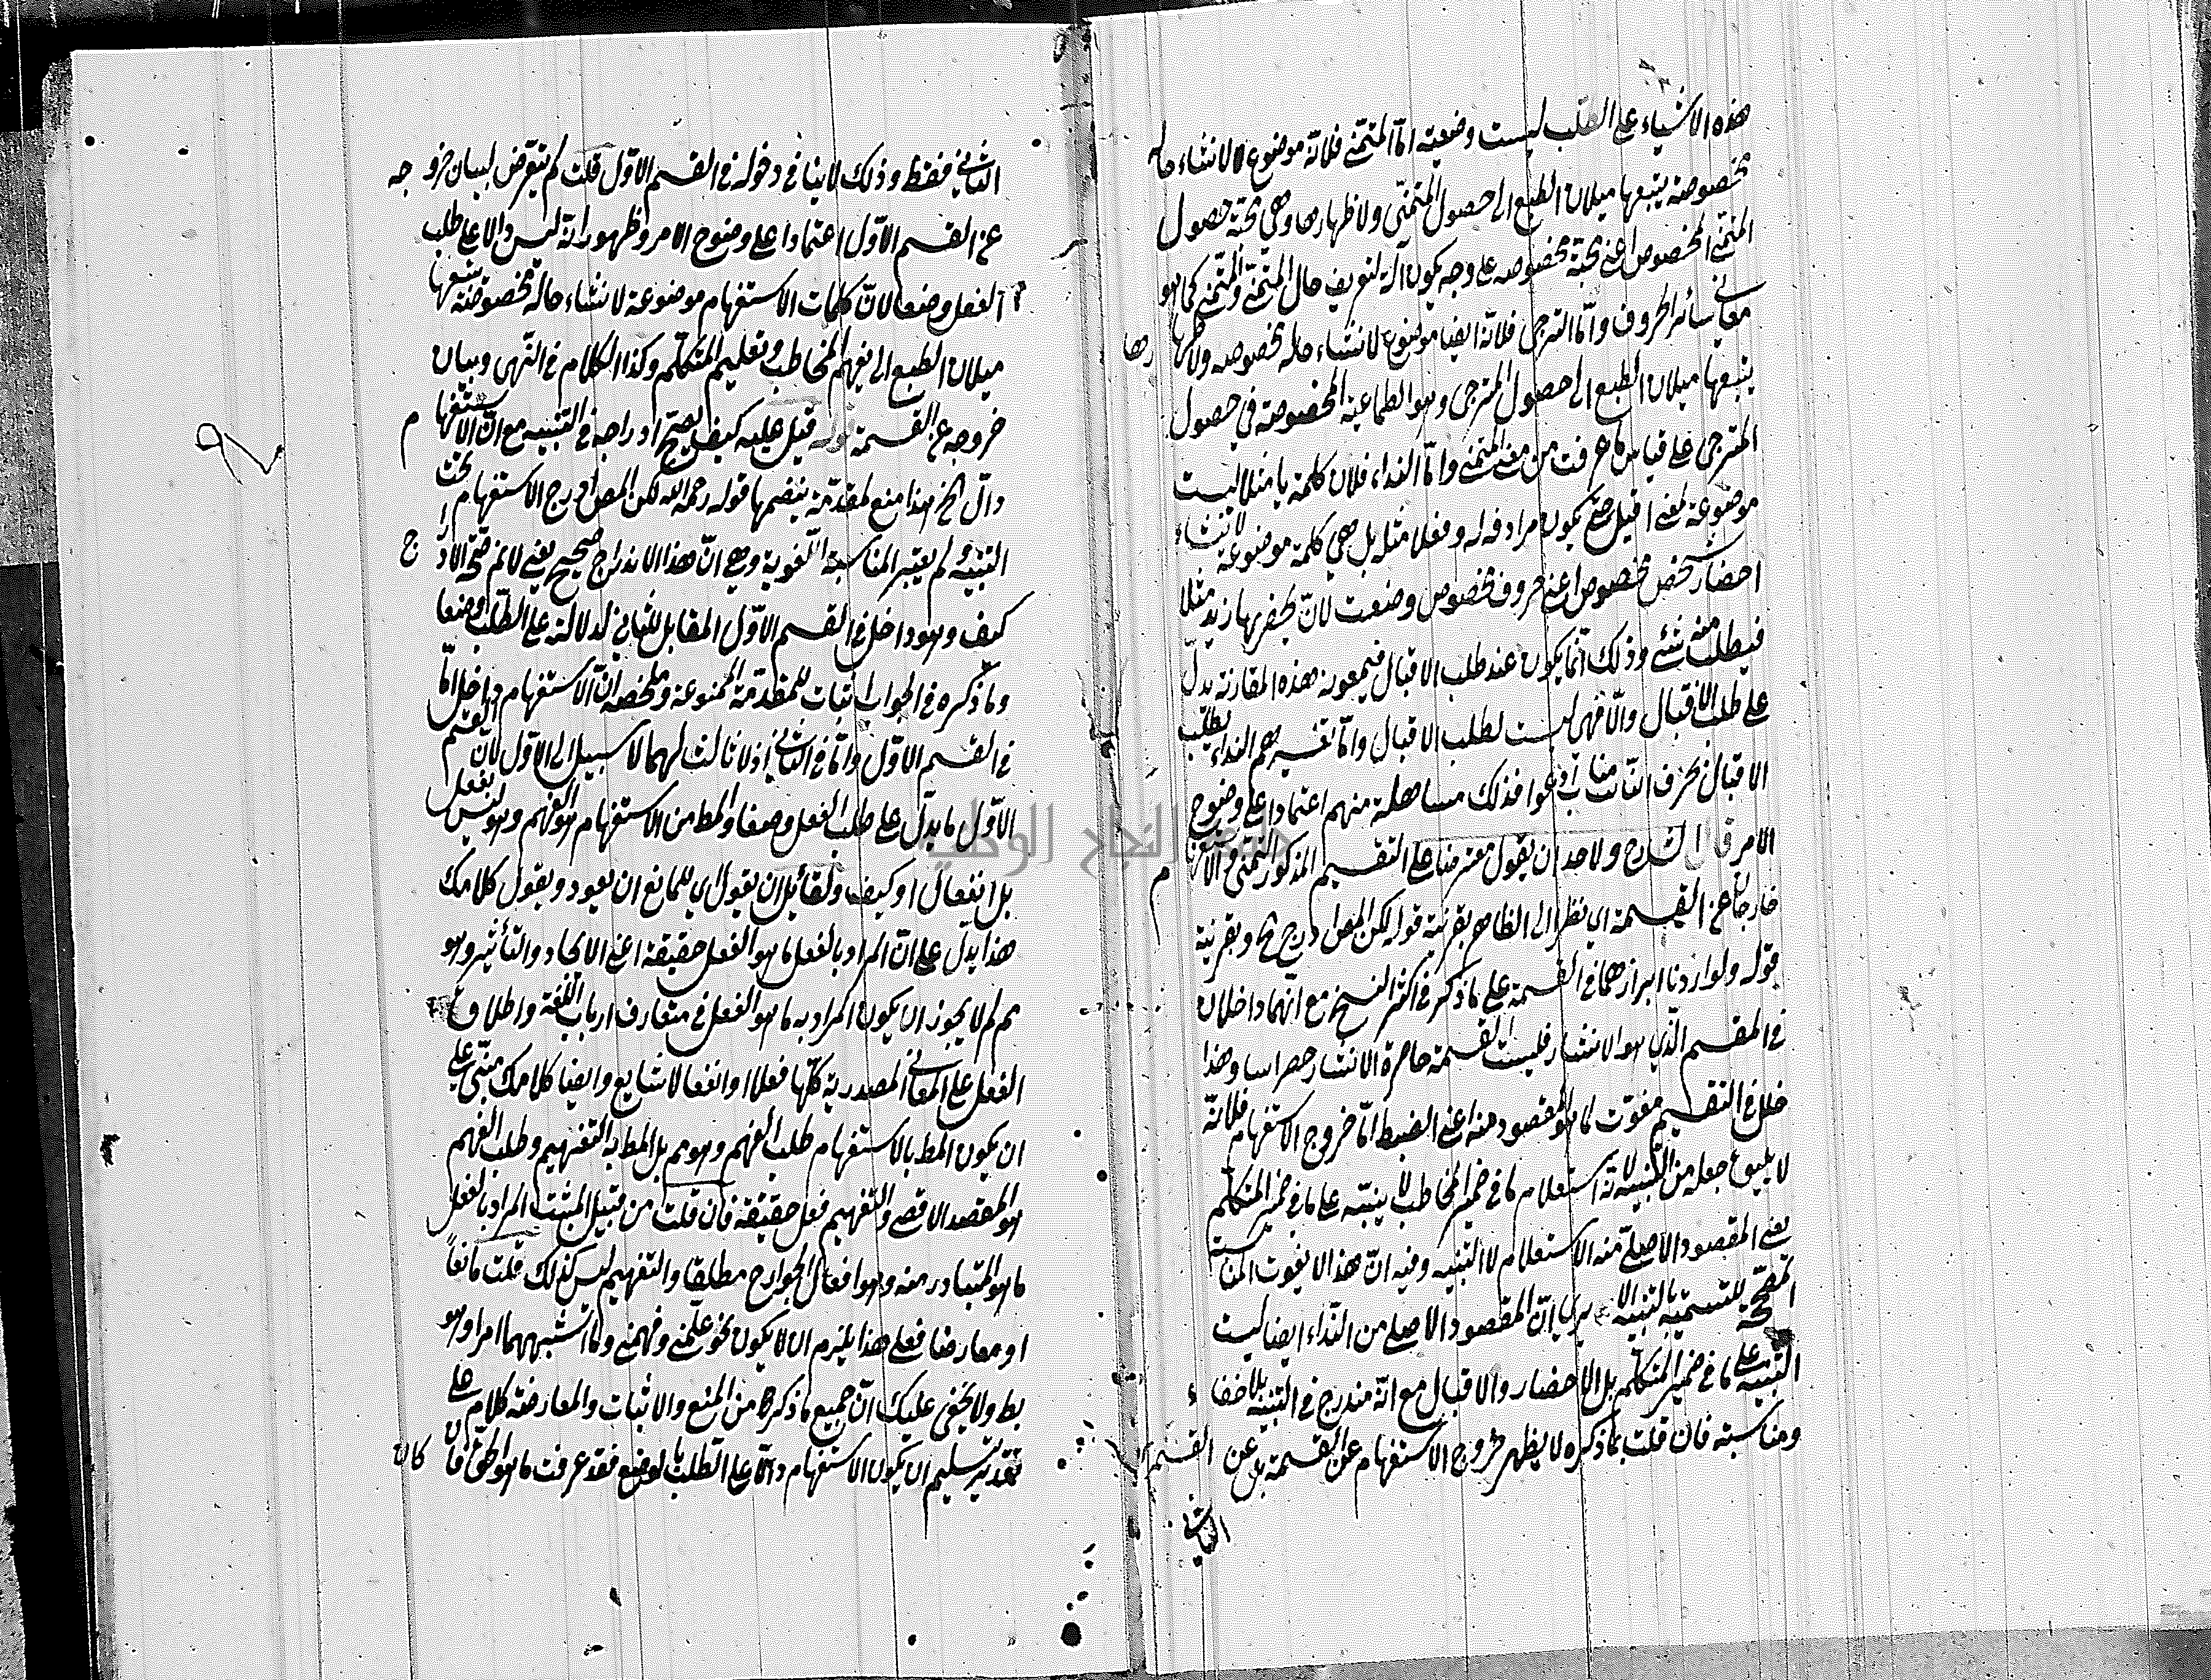 هذه الاشياء على الطلب ليست وضعية اما التمنى فلانه موضوع لانشاء حالة
مخصوصة يتبعها ميلان الطبع الى حصول المتمنى ولاظهارها وهى محبة حصول
المتمنى المخصوص اعنى محبة مخصوصة على وجه يكون آلة لتعريف حال المتمنى والمتمنى كما هو
معانى سائر الحروف واما الترجى فلانه ايضا موضوع لانشاء حالة مخصوصة ولاظهارها
يتبعها ميلان الطبع الى حصول المترجى وهو الطماعية المخصوصة فى حصول
المترجى على قياس ما عرفت من معنى التمنى واما النداء فلان كلمة يا مثلا ليست
موضوعة لمعنى اقبل حتى يكون مرادفه له وفعلا مثله بل هى كلمة موضوعة لانشاء
احضار شخص مخصوص اعنى حروف مخصوص وضعت لان يحضر بها زيد مثلا
فيطلب منه شئ وذلك انما يكون عند طلب الاقبال فبمعونة هذه المقارنة يدل
على طلب الاقبال والا فهى ليست لطلب الاقبال واما تفسيرهم النداء بطلب
الاقبال بحرف النائب مناب ادعوا فذلك مساهلة منهم اعتمادا على وضوح
الامر قال الشارح ولاحد ان يقول معترضا على التقسيم المذكور التمنى والاستفهام
خارجا عن القسمة اى نظرا الى الظاهر بقرينة قوله لكن المص ادرج الخ وبقرينة
قوله ولو اردنا ابرازهما فى القسمة على ما ذكر فى اكثر النسخ مع انهما داخلان
فى المقسم الذى هو الانشاء فليست القسمة حاصرة الانشاء حصرا وهذا
خلل فى التقسيم مفوت لما هو المقصود منه اعنى الضبط اما خروج الاستفهام فلانه
لا يليق جعله من التنبيه لانه استعلام ما فى ضمير المخاطب لا ينبه على ما فى ضمير المتكلم
يعنى المقصود الاصلى منه الاستعلام لا التنبيه وفيه ان هذا لا يفوت المناسبة
المصححة للتسمية بالتنبيه الا يرى ان المقصود الاصلى من النداء ايضا ليست
التنبيه على ما فى ضمير المتكلم بل الاحضار والاقبال مع انه مندرج فى التنبيه بلا خفاء
ومناسبته فان قلت بما ذكره لا يظهر خروج الاستفهام عن القسمة بل عن القسم
الثانى
الثانى فقط وذلك لا ينافى دخوله فى القسم الاول قلت لم يتعرض لبيان خروجه
عن القسم الاول اعتمادا على وضوح الامر وظهور انه ليس دالا على طلب
الفعل وضعا لان كلمات الاستفهام موضوعة لانشاء حالة مخصوصة يتبعها
ميلان الطبع الى تفهيم المخاطب وتعليم المتكلم وكذا الكلام فى النهى وبيان
خروجه عن القسمة قوله قيل عليه كيف يصح ادراجه فى التنبيه مع ان الاستفهام
دال الخ هذا منع لمقدمة يتضمنها قوله رحمه الله لكن المص ادرج الاستفهام تحت
التنبيه ولم يعتبر المناسبة اللغوية وهى ان هذا الاندراج صحيح يعنى لانم صحة الادراج
كيف وهو داخل فى القسم الاول المقابل للثانى لدلالته على الطلب وضعا
وما ذكره فى الجواب اثبات للمقدمة الممنوعة وملخصه ان الاستفهام داخل اما
فى القسم الاول واما فى الثانى اذ لا ثالث لهما لا سبيل الى الاول لان القسم
الاول ما يدل على طلب الفعل وضعا والمط من الاستفهام هو الفهم وهو ليس بفعل
بل انفعال او كيف ولقائل ان يقول اى للمانع ان يعود ويقول كلامك
هذا يدل على ان المراد بالفعل ما هو الفعل حقيقة اعنى الايجاد والتأثير وهو
مم لم لا يجوز ان يكون المراد به ما هو الفعل فى متعارف ارباب اللغة واطلاق
الفعل على المعانى المصدرية كلها فعلا او انفعالا شايع وايضا كلامك مبنى على
ان يكون المط بالاستفهام طلب الفهم وهو مم بل المط به التفهيم وطلب الفهم
هو المقصد الاقصى والتفهيم فعل حقيقة فان قلت من قبل المثبت المراد بالفعل
ما هو المتبادر منه وهو افعال الجوارح مطلقا والتفهيم ليس كذلك قلت مانعا
او معارضا فعلى هذا يلزم ان لا يكون نحو علمنى وفهمنى وما اشبههما امرا وهو
بط ولا يخفى عليك ان جميع ما ذكره من المنع والاثبات والمعارضة كلام على
تقدير تسليم ان يكون الاستفهام دالا على الطلب بالوضع فقد عرفت ما هو الحق فان كان